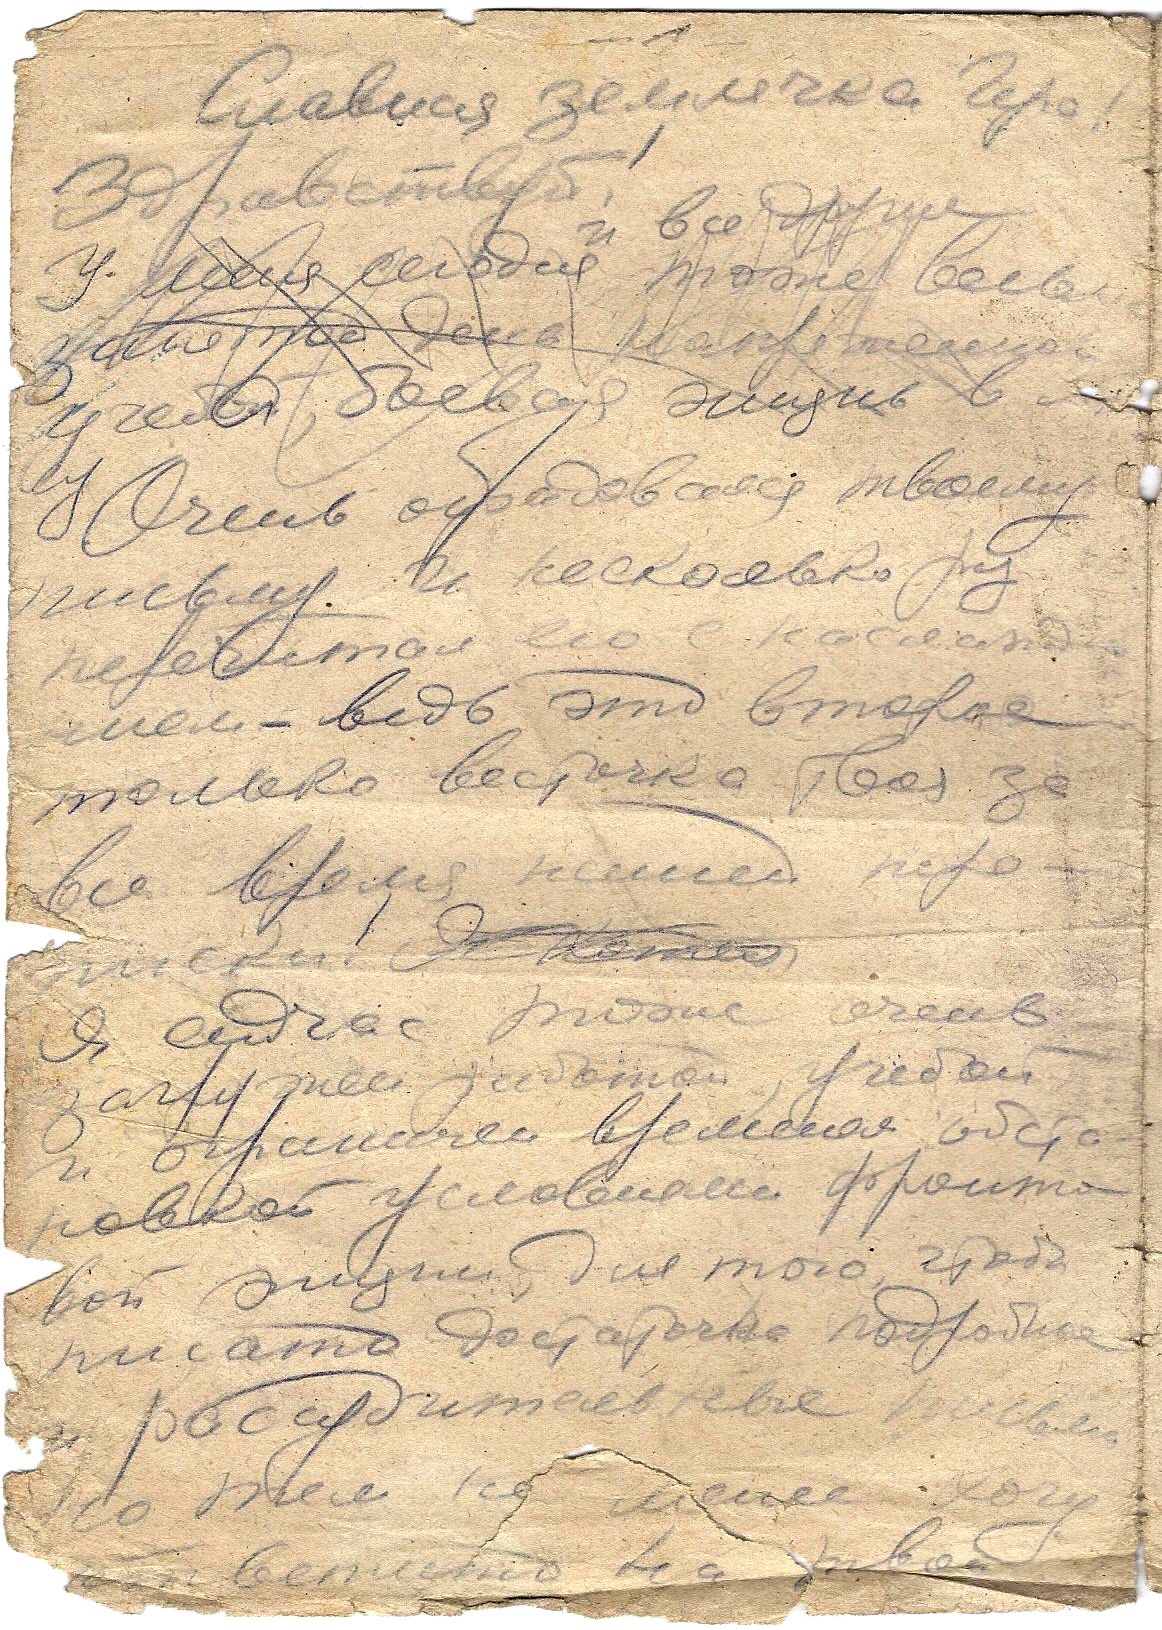 — 1 —
Славная землячка Ира!
Здравствуй!
и все другие
У меня сегодня тоже весьма
занятой день напряженная
учеба, боевая жизнь в
Очень обрадовался твоему
письму и несколько раз
перечитал его с наслажде
нием - ведь это второе
только весточка твоя за
все время нашей пере-
писки!
Я сейчас тоже очень
загружен работой, учебой
и ограничен временем, обста-
новкой условиями фронто
вой жизни, для того, чтобы
писать достаточно подробные
и рассудительные письма
но тем не менее хочу
ответить на твой